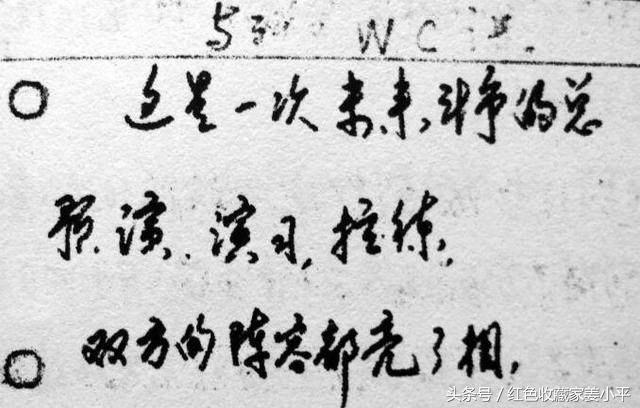 与 W C
这是一次未来斗争的总
预演、演习,拉练,
双方的阵容都亮了相,
头条号 / 红色收藏家姜小平